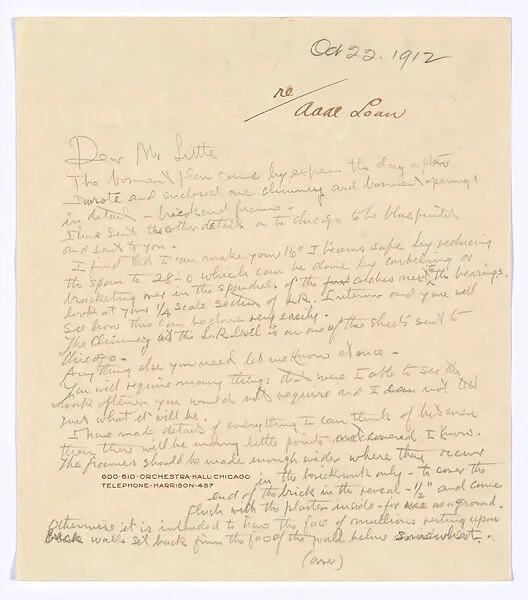 Oct 22. 1912
re/
Add'l Loan
Dear Mr Little
The basement plan came by express the day after
I wrote and enclosed one chimney and basement openings
in detail - brick and frame.
I have sent the other details on to Chicago to be blueprinted
and sent to you.
I find that I can make your 16" I beams safe by reducing
the span to 28'-0 which can be done by corbeling or
bracketing over in the spandrels of the arches next the bearings.
look at your 1/4 scale section of L.R. Interior and you will
see how this can be done very easily.
The Chimney at the L.R. level is on one of the sheets sent to
Chicago.
Anything else you need let me know at once -
You will require many things that were I able to see the
work oftener you would not require and I can not tell
just what it will be.
I have made details of everything I can think of but even
then there will be many little points not covered, I know.
The frames should be made enough wider where they occur
in the brickwork only - to cover the
600-610·ORCHESTRA·HALL·CHICAGO
TELEPHONE·HARRISON·487
end of the brick in the reveal - 1 1/2" and come
flush with the plaster inside - for use as a ground.
Otherwise it is intended to have the face of mullions resting upon
walls set back from the face of the wall below somewhat.
(over)